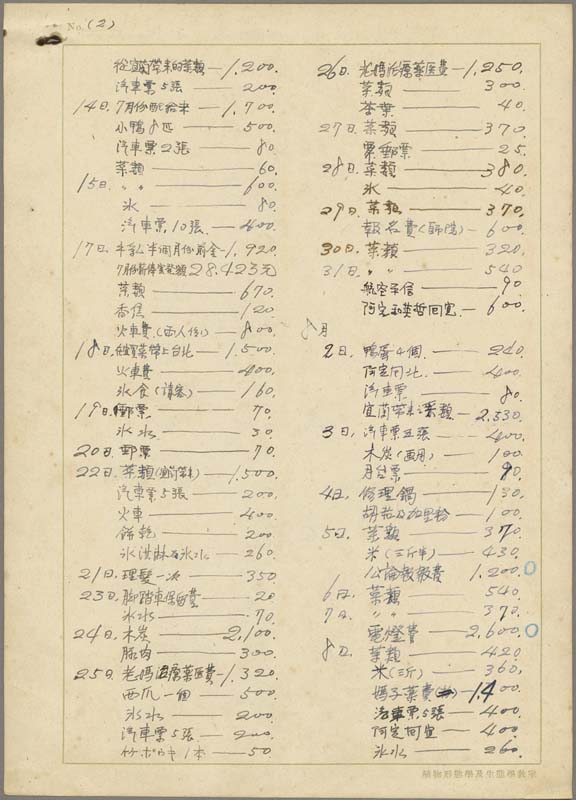 No. (2)
從宜蘭帶来的菜類 — 1,200.
汽車票5張 — 200.
14日. 7月份配給米 — 1,700.
小鴨8匹 — 500.
汽車票2張 — 80.
菜類 — 60.
15日. 〃 〃 — 600.
氷 — 80.
汽車票10張 — 400.
17日. 半個月份前金 — 1,920.
28,423元
菜類 — 670.
香蕉 — 120.
火車費(西人份) — 800.
18日. 菜帶上台北 — 1,500.
火車費 — 400.
氷食(請客) — 160.
19日. 郵票 — 70.
氷水 — 30.
20日. 郵票 — 70.
22日. 菜類 — 1,500.
汽車票5張 — 200.
火車 — 400.
餅乾 — 200.
氷淇淋及氷水 — 260.
21日. 理髮一次 — 350.
23日. 脚踏車保管費 — 20
氷水 — 70.
24日. 木炭 — 2,100.
豚肉 — 300.
25日. 老媽治療菜医費 — 1,320.
西爪一個 — 500.
氷水 — 200.
汽車票5張 — 200.
竹ボウキ1本 — 50.
26日. 老媽治療藥医費 — 1,250.
菜類 — 300.
茶葉 — 40.
27日. 菜類 — 370.
郵票 — 25.
28日. 菜類 — 380.
氷 — 40.
29日. 菜類 — 370.
報名費 — 600.
30日. 菜類 — 320.
31日. 〃 〃 — 540
航空手信 — 90
600.
8月
2日. 鴨蛋4個. — 240.
400.
汽車票 — 80.
宜蘭帶来菜類 — 2,330.
3日. 汽車票五張 — 400.
木炭 — 100.
月台票 — 90.
4日. 修理鍋 — 130.
胡椒及加里粉 — 100.
5日. 菜類 — 370.
米(三斤半) — 430.
公論報報費 1,200.
6日. 菜類 — 540.
7日. 〃 〃 — 370.
電燈費 — 2,600.
8日. 菜類 — 420
米(三斤) — 360.
1,400.
汽車票5張 — 400.
400.
氷水 — 260.
植物形態學及生態學教室